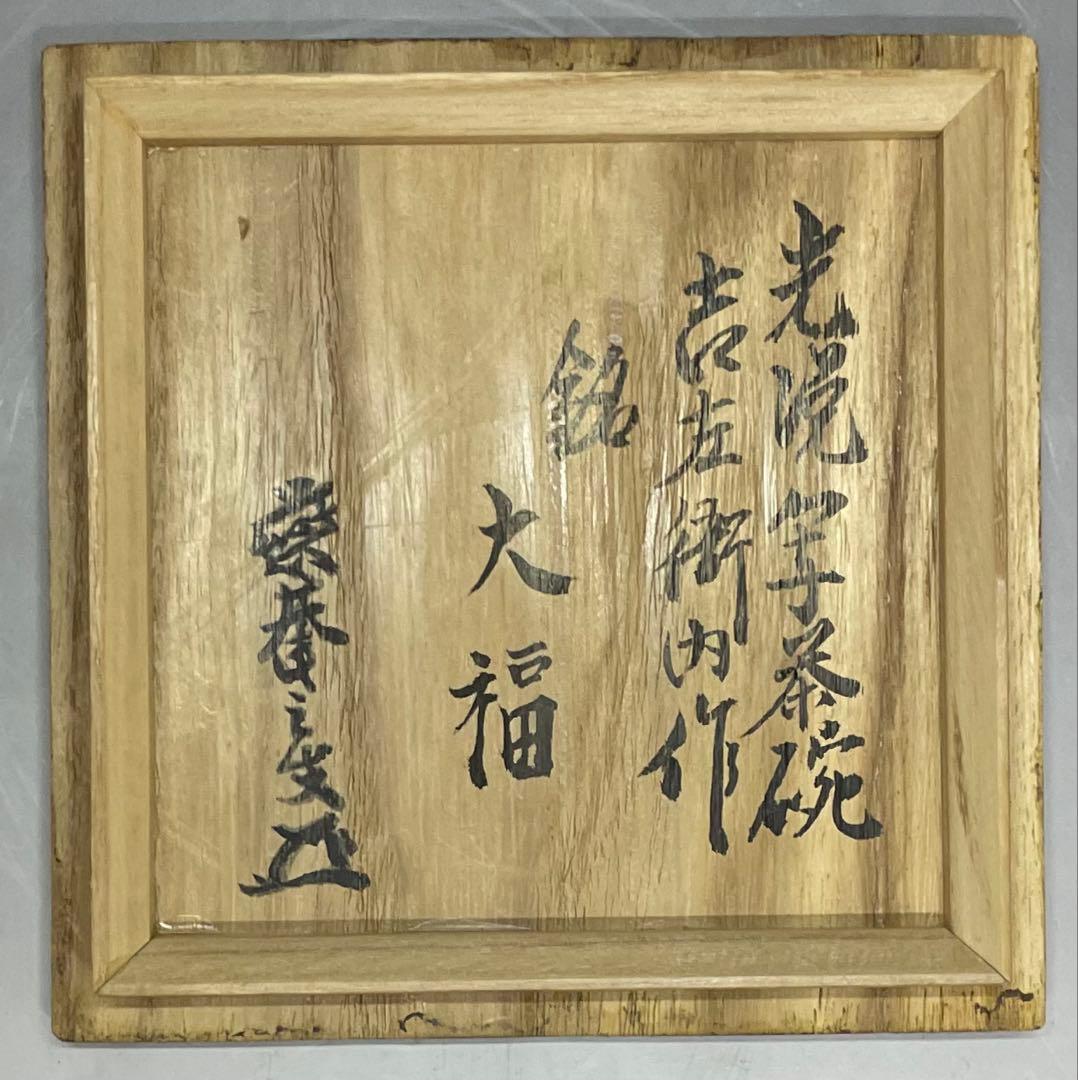 光悦写茶碗
吉左衛門作
銘
大福